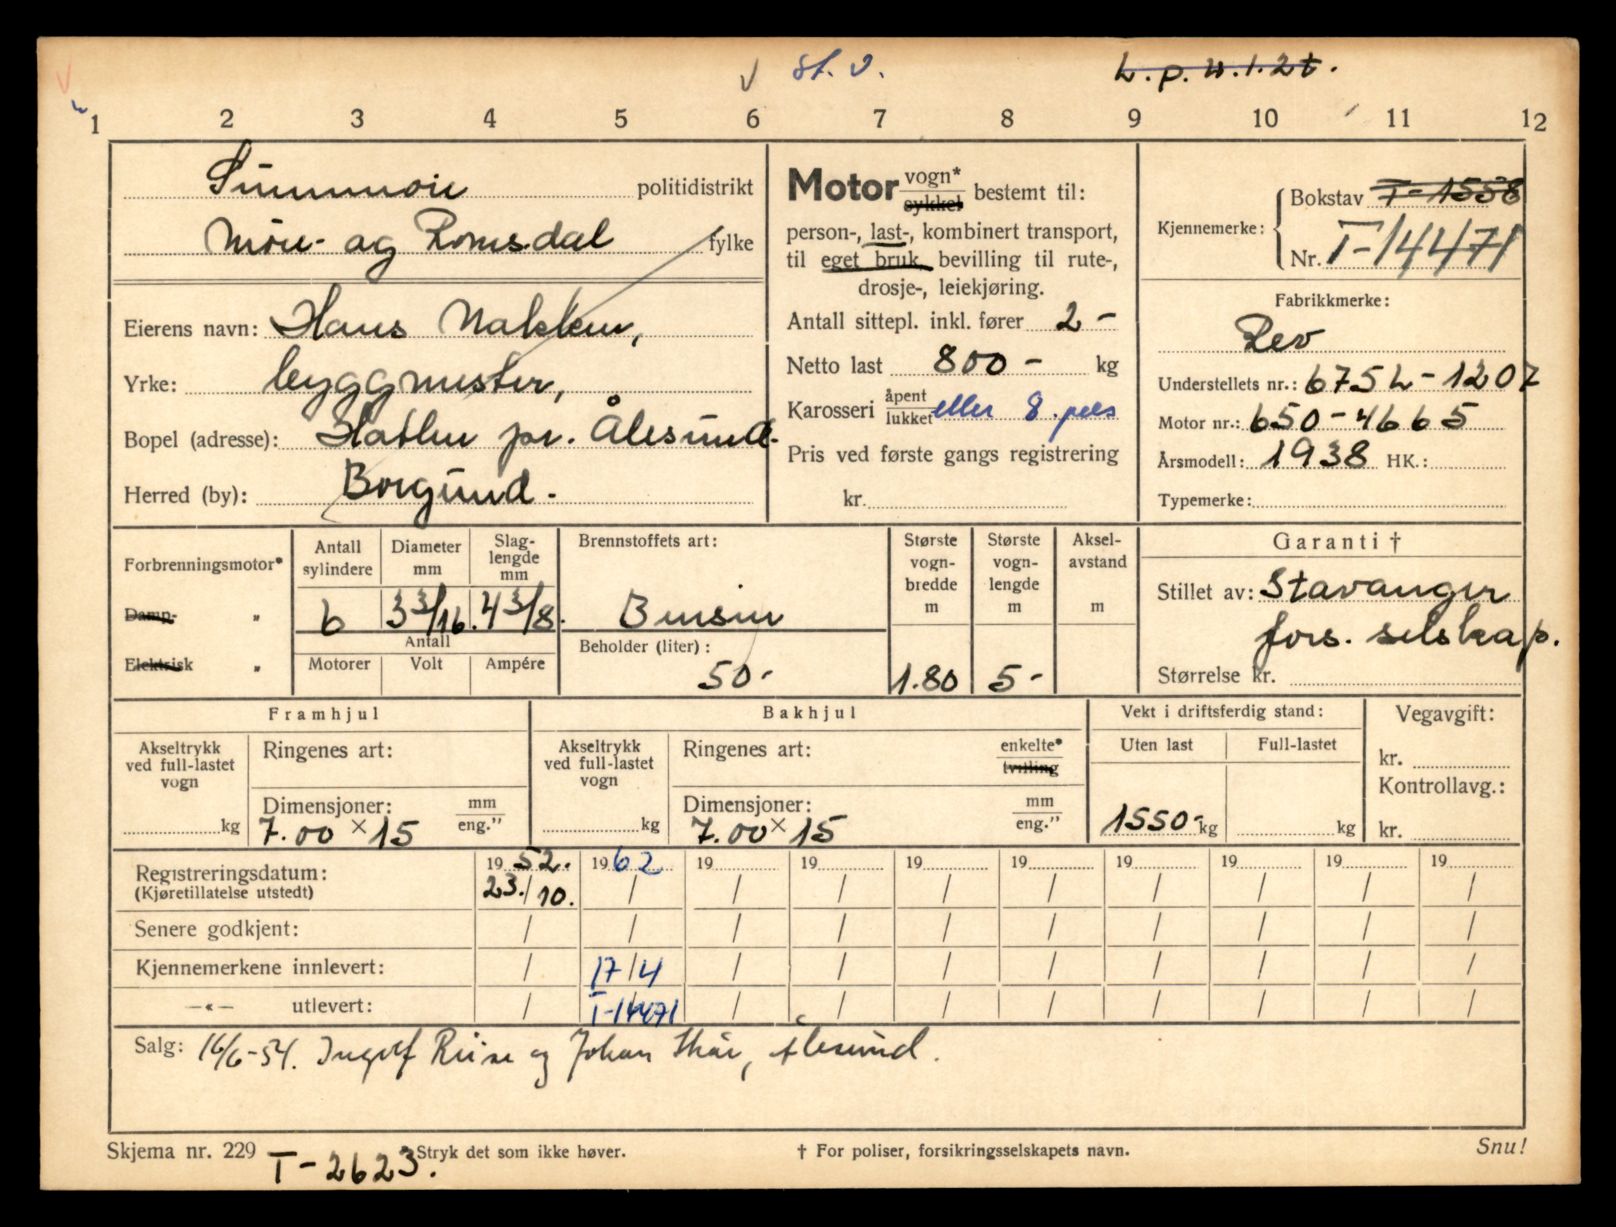 st. v.
L. p. u. 1. 2t.
1 2 3 4 5 6 7 8 9 10 11 12
Sunnmøre politidistrikt
Møre- og Romsdal fylke
Eierens navn: Hans Nakken,
Yrke: byggmester,
Bopel (adresse): Hatlen pr. Ålesund.
Herred (by): Borgund.
Motor vogn* sykkel bestemt til:
person-, last-, kombinert transport,
til eget bruk, bevilling til rute-,
drosje-, leiekjøring.
Antall sittepl. inkl. fører 2-
Netto last 800- kg
Karosseri åpent lukket eller 8 pers
Pris ved første gangs registrering
kr.
Kjennemerke: Bokstav T-1558
Nr. T-14471
Fabrikkmerke:
Reo
Understellets nr.: 675L-1207
Motor nr.: 650-4665
Årsmodell: 1938 HK.:
Typemerke:
Forbrenningsmotor*
Damp- "
Elektrisk "
Antall sylindere
6
Diameter mm
3 3/16.
Slaglengde mm
4 3/8.
Antall
Motorer Volt Ampére
Brennstoffets art:
Bensin
Beholder (liter):
50.-
Største vognbredde m
1.80
Største vognlengde m
5-
Akselavstand m
Garanti †
Stillet av: Stavanger
fors. selskap.
Størrelse kr.
Framhjul
Akseltrykk ved full-lastet vogn
kg
Ringenes art:
Dimensjoner: mm eng."
7.00 x 15
Bakhjul
Akseltrykk ved full-lastet vogn
kg
Ringenes art: enkelte* tvilling
Dimensjoner: mm eng."
7.00 x 15
Vekt i driftsferdig stand:
Uten last Full-lastet
1550- kg kg
Vegavgift:
kr.
Kontrollavg.:
kr.
Registreringsdatum: 1952. 1962 19 19 19 19 19 19 19 19
(Kjøretillatelse utstedt) 23./10. / / / / / / / / /
Senere godkjent: / / / / / / / / / /
Kjennemerkene innlevert: / 17/4 / / / / / / / /
—«— utlevert: / T-14471 / / / / / / / /
Salg: 16/6-54. Ingolf Riise og Johan Skår, Ålesund.
Skjema nr. 229 *Stryk det som ikke høver. † For poliser, forsikringsselskapets navn. Snu!
T-2623.